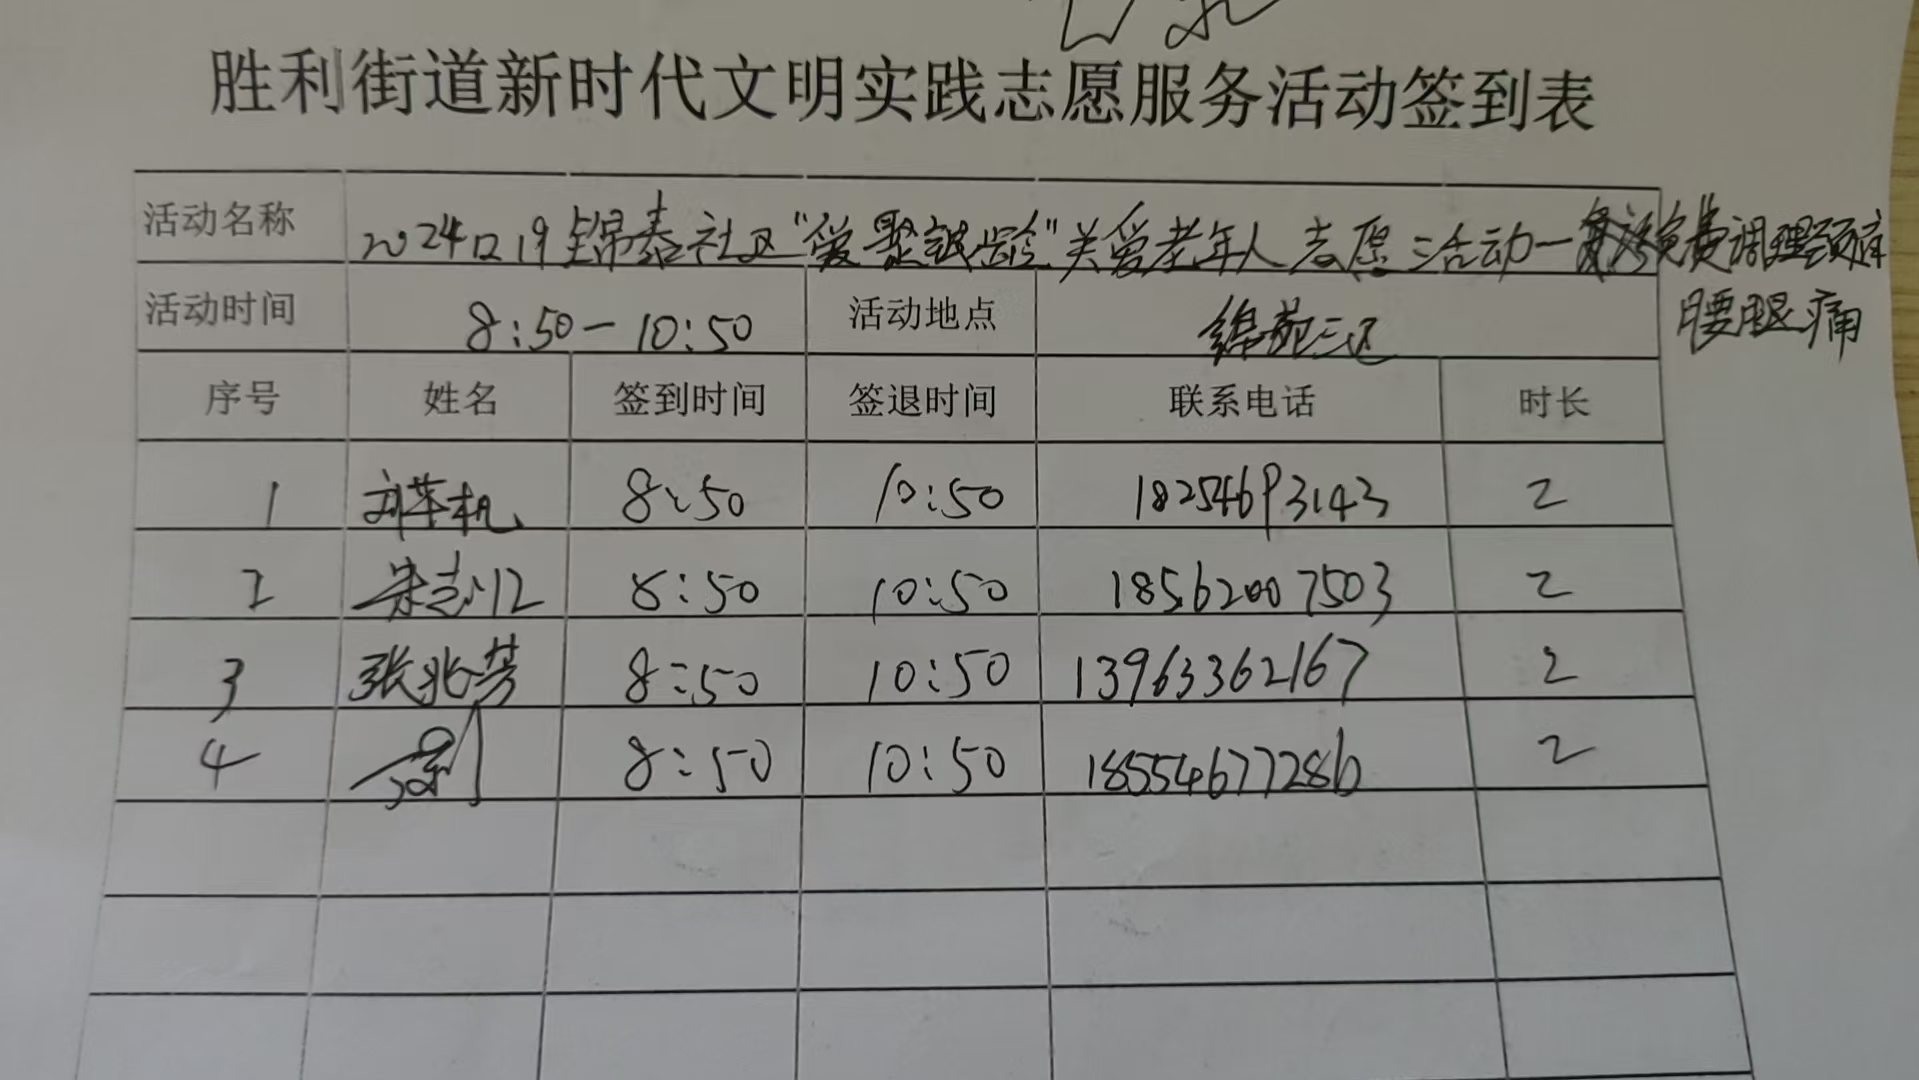 胜利街道新时代文明实践志愿服务活动签到表
活动名称 20241219锦泰社区"爱聚诚龄"关爱老年人志愿活动一免费调理颈肩
腰腿痛
活动时间 8:50-10:50 活动地点 锦苑三区
序号 姓名 签到时间 签退时间 联系电话 时长
1 8:50 10:50 18254693143 2
2 8:50 10:50 18562007503 2
3 张兆芳 8:50 10:50 13963362167 2
4 8:50 10:50 18554677286 2